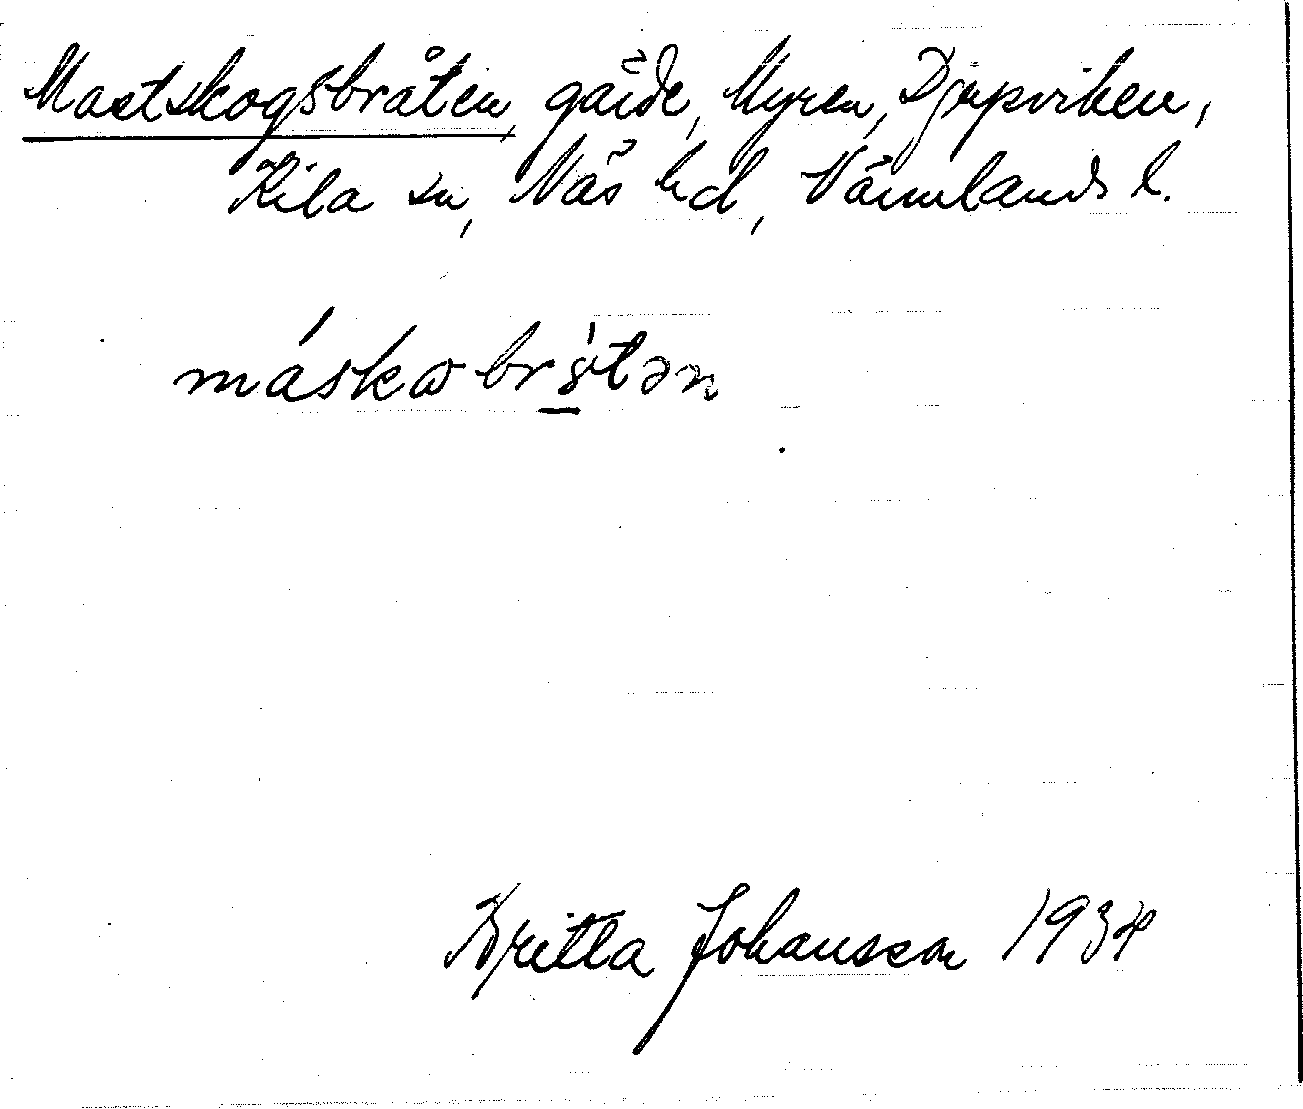 Mastskogsbråten, gärde, Myren, Djupviken,
Kila sn, Näs hd, Värmlands l.
máskabrǻtən
Britta Johansson 1934